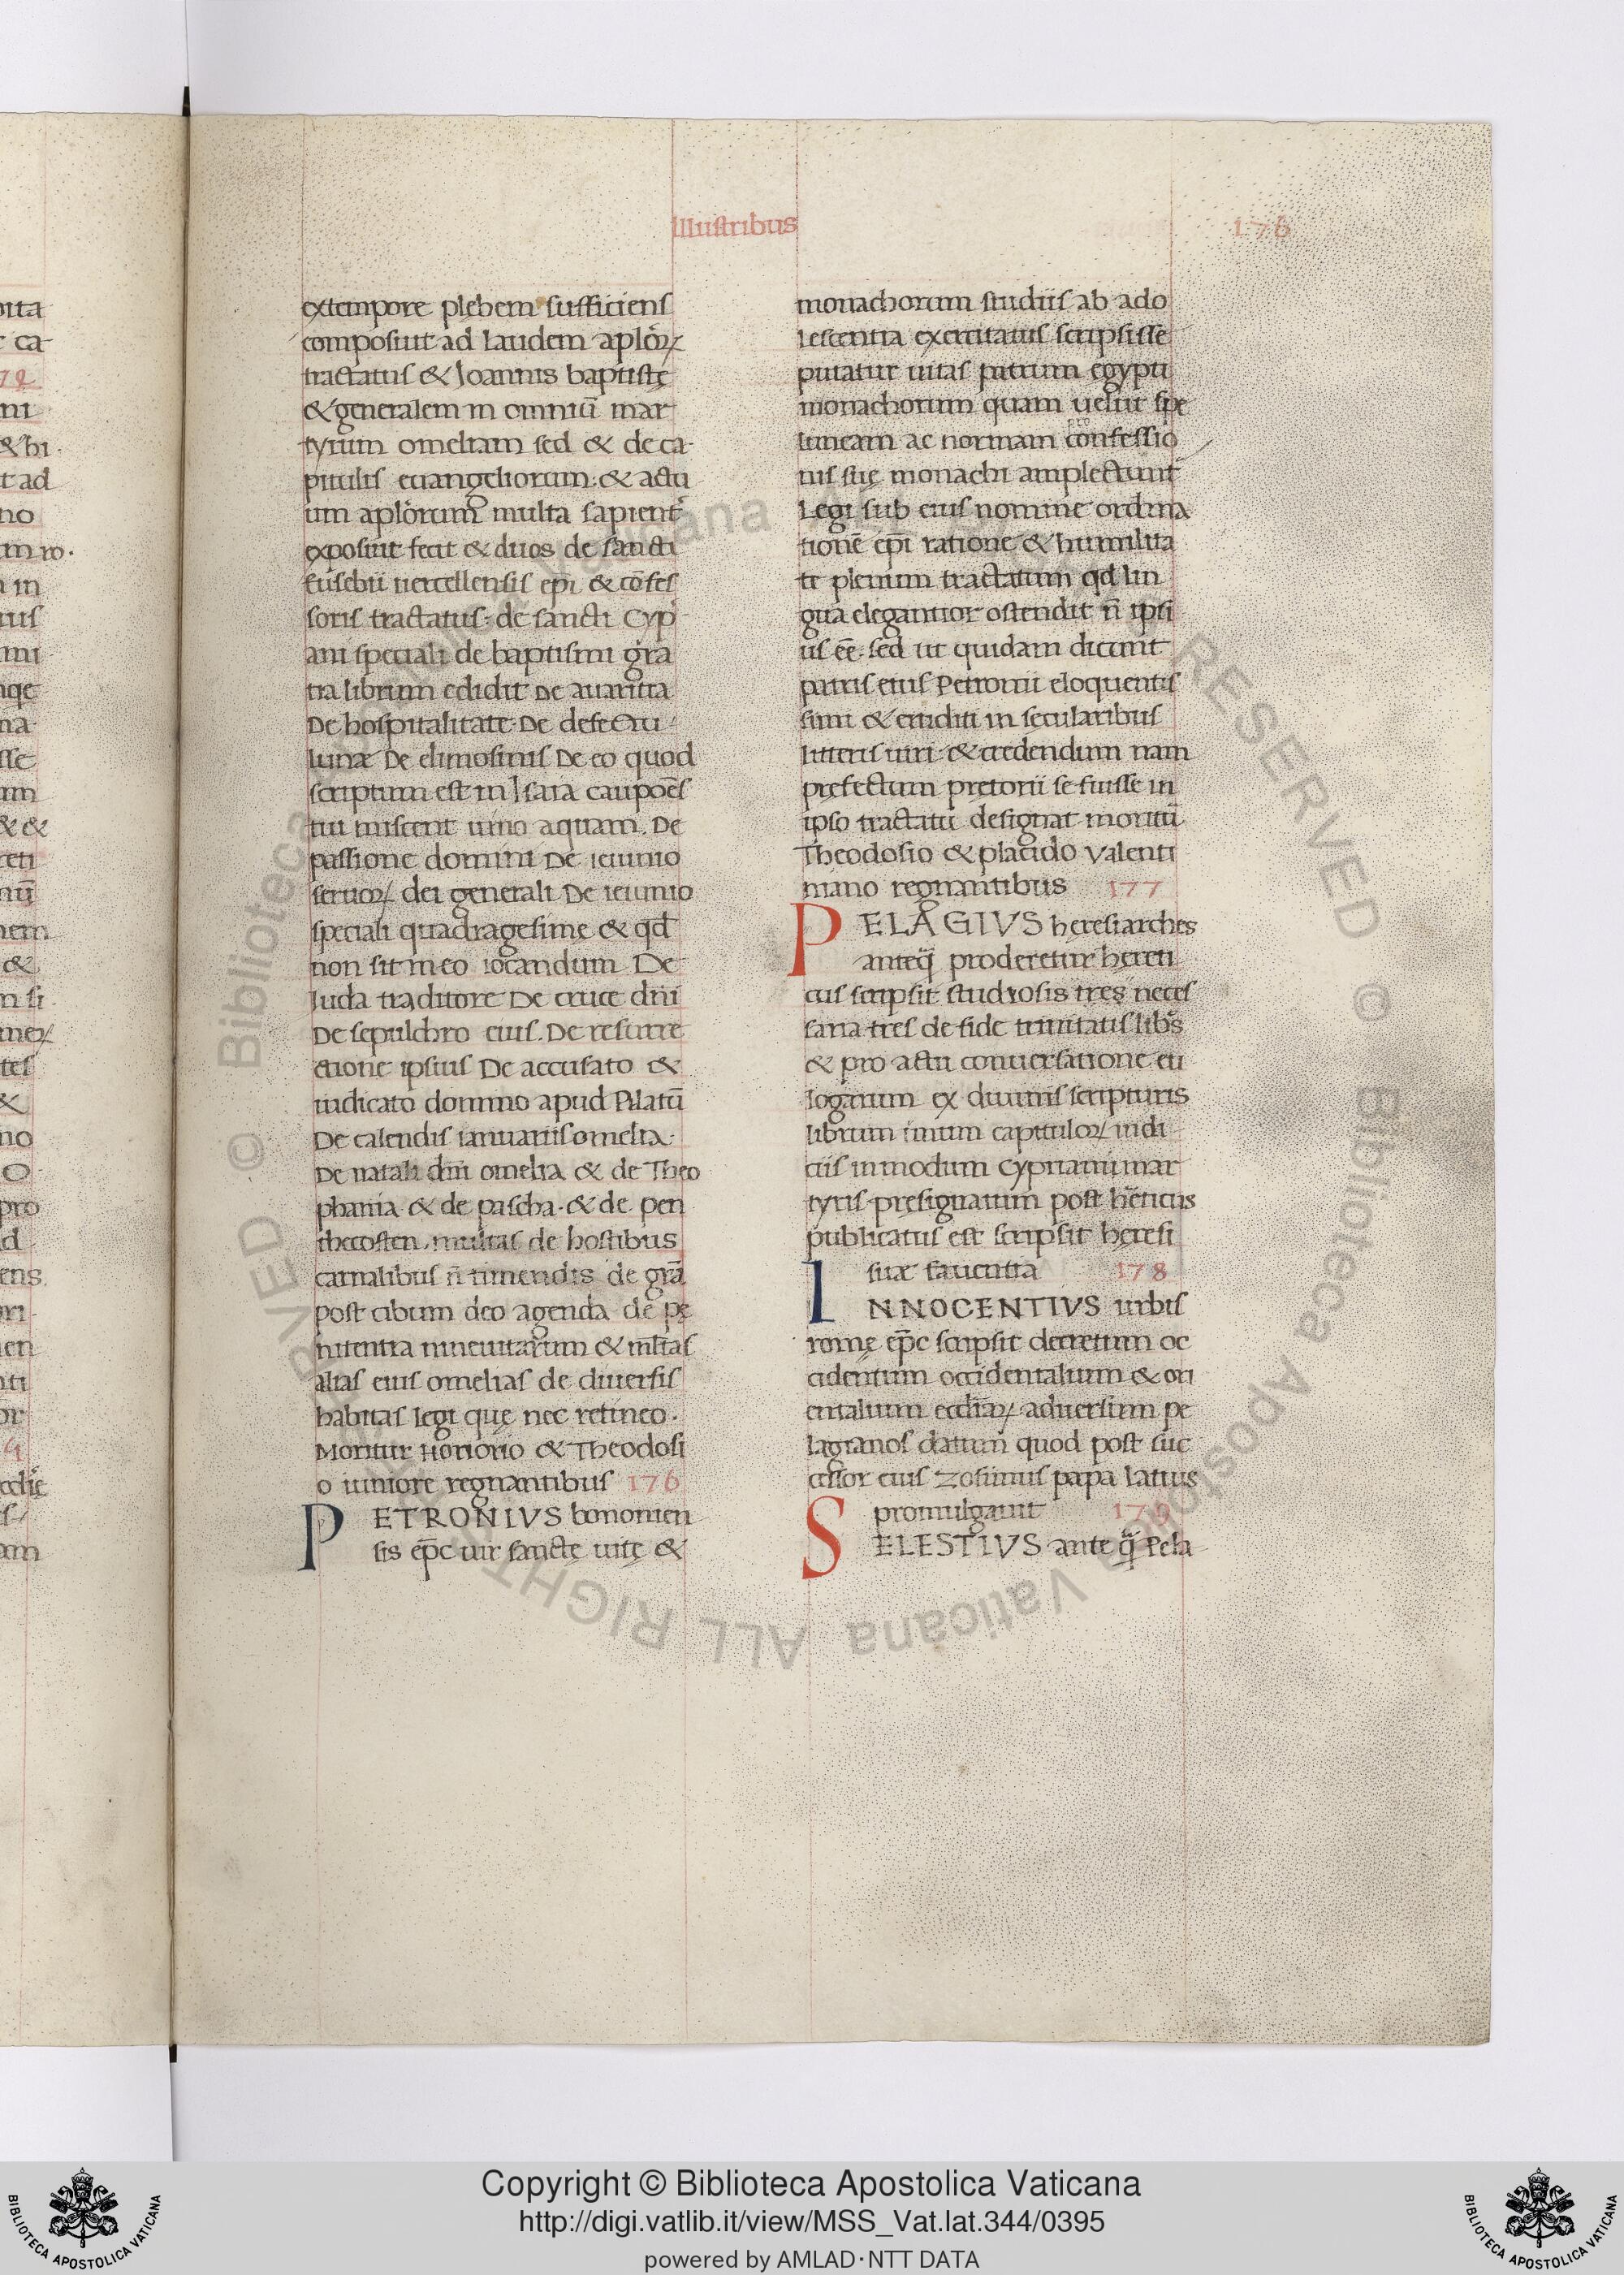 Illustribus
176
extempore plebem sufficiens
composuit ad laudem aplōꝝ
tractatus & Joannis baptistę
& generalem in omniū mar
tyrum omeliam sed & de ca-
pitulis euangeliorum: & actu
um aplorum multa sapient̄
exposuit fecit & duos de sancti
Eusebii uercellensis ep̄i & cōfes
soris tractatus: de sancti Cyp
ani speciali de baptismi gr̄a
tra librum edidit De auaritia
De hospitalitate. De defectu
lunæ De elimosinis De eo quod
scriptum est in Isaia caupōes
tui miscent uino aquam. De
passione domini De ieiunio
seruoꝝ dei generali De ieiunio
speciali quadragesime & qd
non sit in eo iocandum De
Iuda traditore De cruce dn̄i
De sepulchro eius. De resurre
ctione ipsius De accusato &
iudicato domino apud Pilatū
De calendis ianuariis omelia.
De natali dn̄i omelia & de Theo
phania & de pascha. & de pen
thecosten. multas de hostibus
carnalibus n̄ timendis de grā
post cibum deo agenda de pę
nitentia niniuitarum & ml̄tas
alias eius omelias de diuersis
habitas legi quę nec retineo.
Moritur Honorio & Theodosi
o iuniore regnantibus 176
PETRONIUS bononien
sis ep̄c uir sanctę uitę &
monachorum studiis ab ado
lescentia exercitatus scripsisse
putatur uitas patrum egypti
monachorum quam uelut spe
luneam ac normam confessio
pro
nis suę monachi amplectunt̄
Legi sub eius nomine ordina
tione ep̄i ratione & humilita
te plenum tractatum qd lin
gua elegantior ostendit n̄ ipsi
us ēe. sed ut quidam dicunt
patris eius Petronii eloquentis
simi & eruditi in secularibus
litteris uiri. & credendum nam
prefectum pretorii se fuisse in
ipso tractatu designat moritū
Theodosio & placido Valenti
niano regnantibus 177
PELAGIVS heresiarches
anteq̄ proderetur hereti
cus scripsit studiosis tres neces
saria tres de fide trinitatis libs
& pro actu conuersatione eu
logarium ex diuinis scripturis
librum unum capituloꝝ indi
ciis in modum cypriani mar
tyris presignatum post hēticus
publicatus est scripsit heresi
suæ fauentia 178
INNOCENTIVS urbis
romę ep̄c scripsit decretum oc
cidentum occidentalium & ori
entalium eccl̄iaꝝ aduersum pe
lagianos datum quod post suc
cessor eius Zosimus papa latius
promulgauit 179
SELESTIVS ante q̄ Pela
Copyright © Biblioteca Apostolica Vaticana
http://digi.vatlib.it/view/MSS_Vat.lat.344/0395
powered by AMLAD·NTT DATA